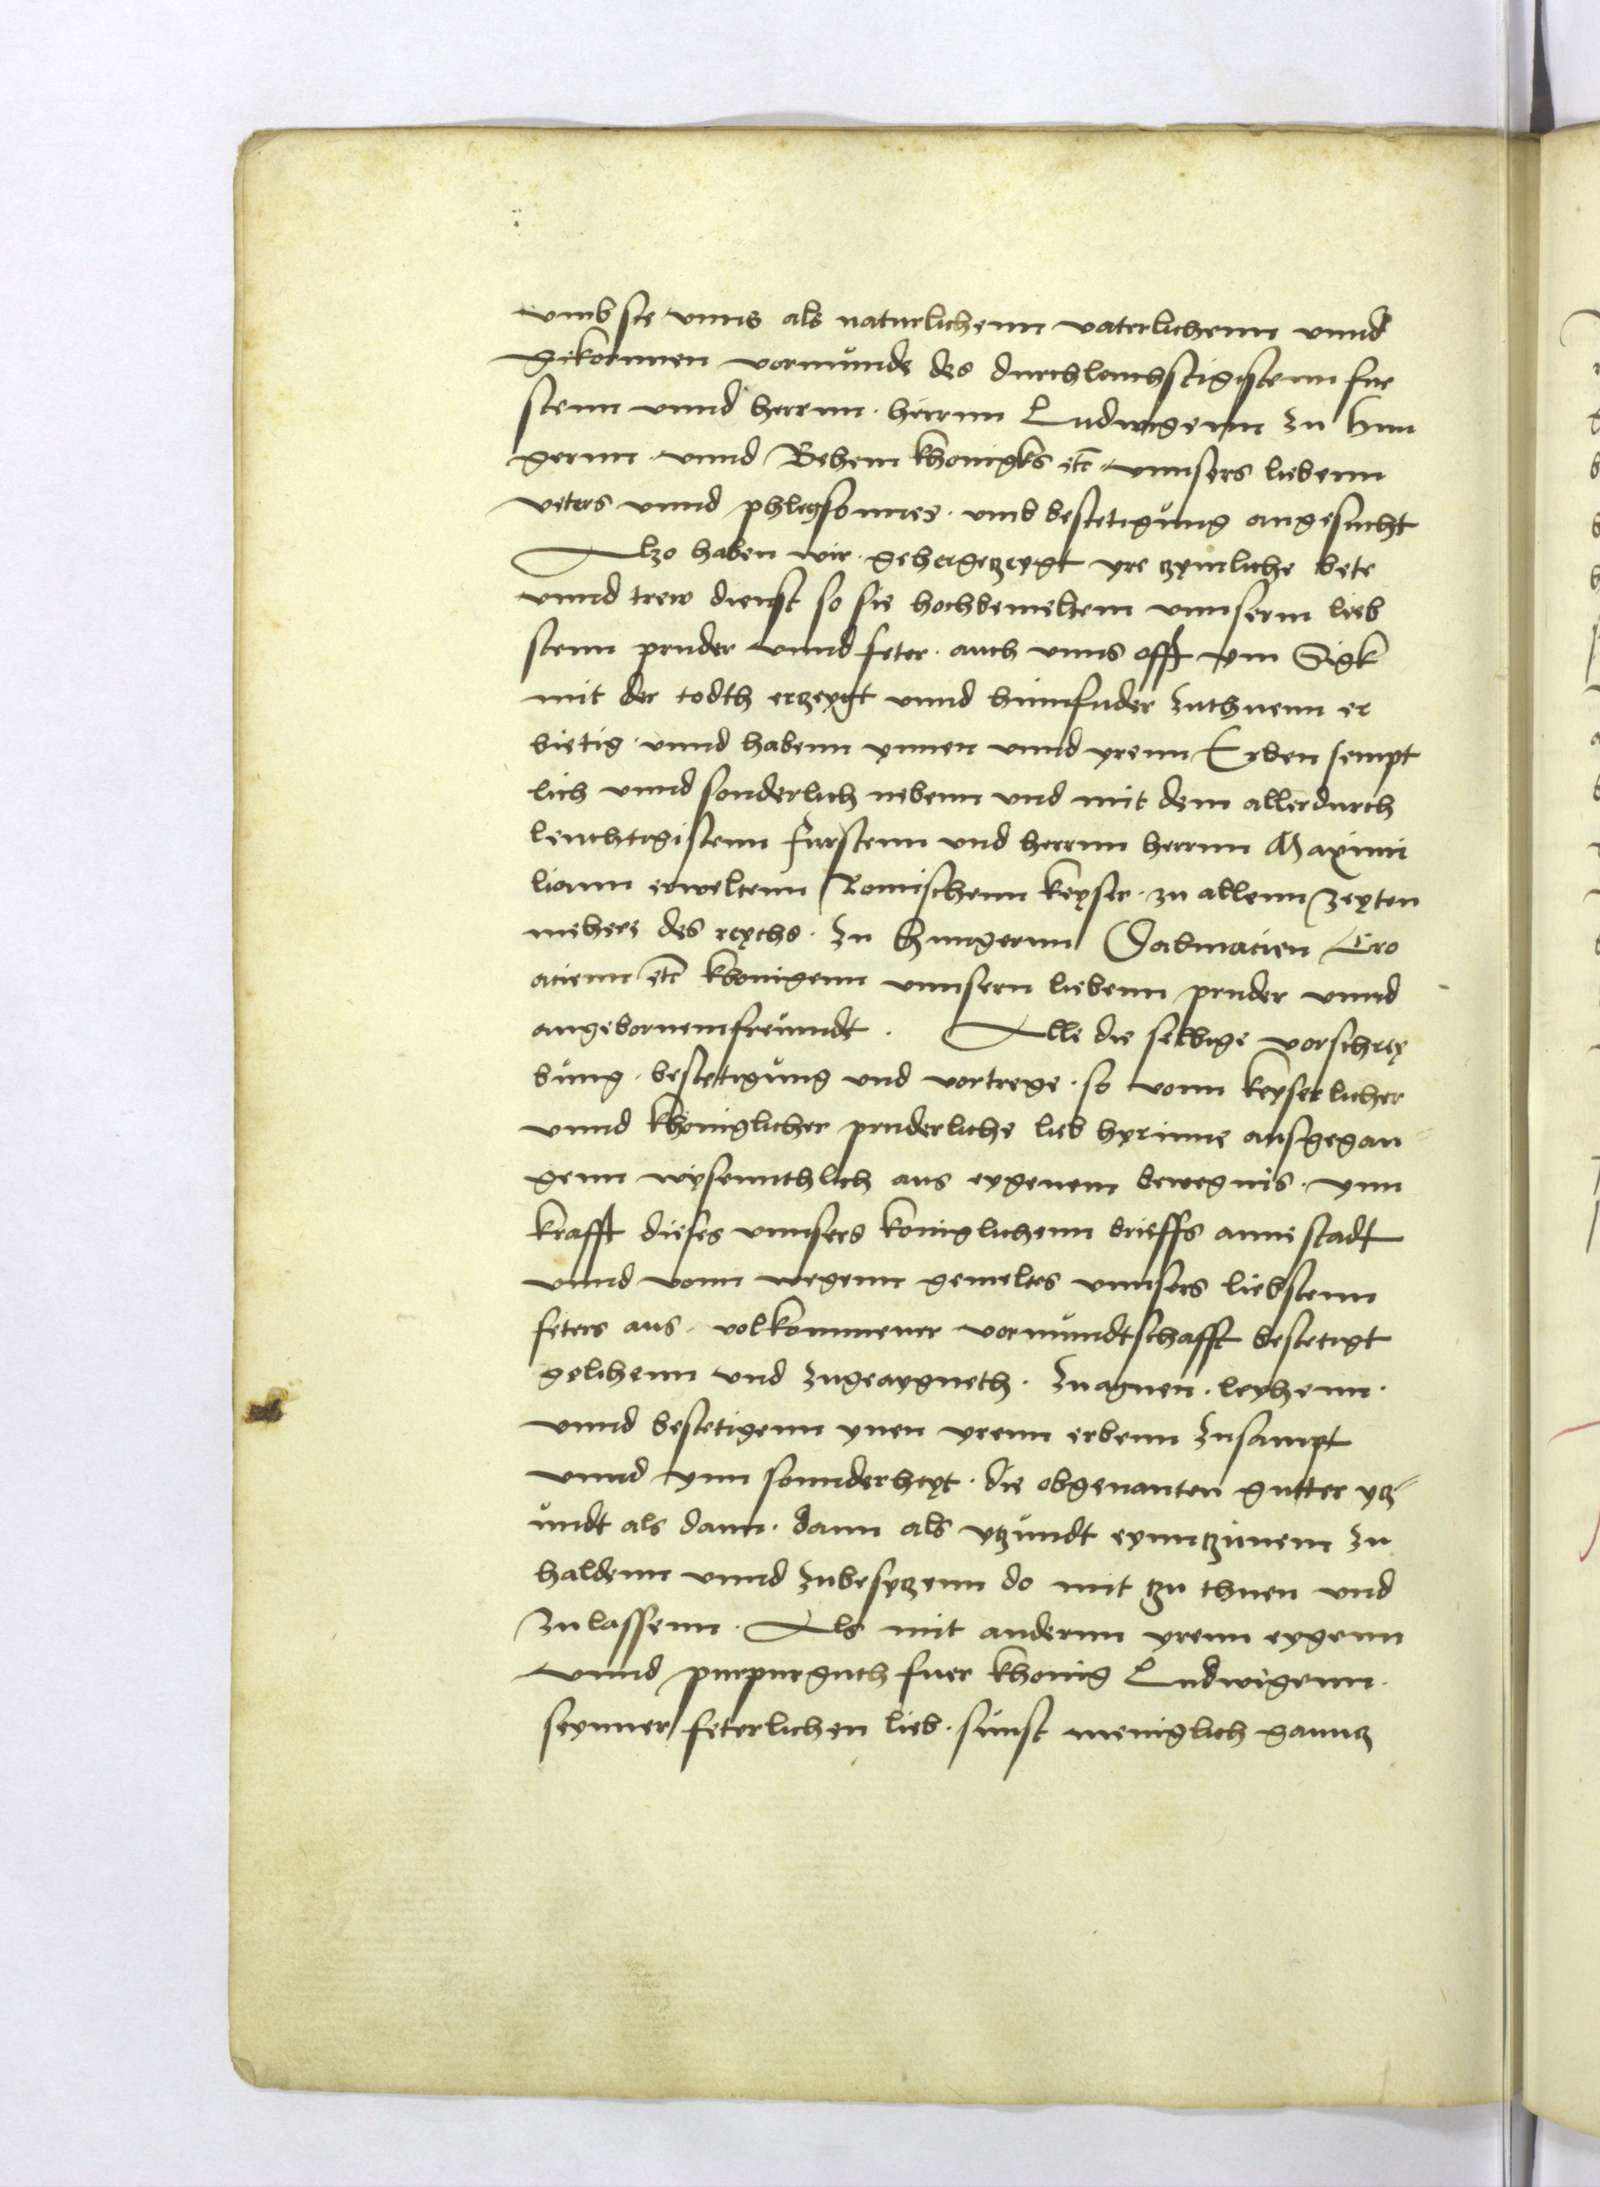 umb sie vnns als naturlichenn vaterlichenn vnnd
gekornnen vormunde des durchleuchstigistenn fur
stenn vnnd herrnn. herrnn Ludwigenn zu Hun
gernn vnnd Behem khonigks etc vnnsers liebenn
veters vnnd phlegsonnes. umb bestetigung angesucht
Alzo haben wir. yre zymliche bete
vnnd trew dienst so sie hochbemeltem vnnserm lieb
stenn pruder vnnd feter. auch vnns offt ym
mit der todth erzeygt vnnd hinnfuder zuthuenn er
bietig. vnnd habenn ynnen vnnd yrenn Erben sempt
lich vnnd sonderlich nebenn vnd mit dem allerdurch
leuchtigistenn furstenn vnd herrnn herrnn Maximi
liann erweltenn Romischenn keyser. zu allenn zeyten
mehere des reychs. zu Hungernn Dalmacien Cro
acienn etc khonigenn vnnsern liebenn pruder vnnd
angebornemfreundt. Alle die selbige vorschrey
bung. bestetigung vnd vortrege. so vonn keyserlicher
vnnd khoniglicher pruderliche lieb hyrinne ausgegan
genn wysennthlich aus eygenem bewegnis. ynn
krafft dieses vnnsers koniglichenn brieffs anne stadt
vnnd vonn wegenn gemeltes vnnsers liebstenn
feters aus. volkommener vormundtschafft bestetigt
gelihenn vnd zugeaygneth. zuagnen. leyhenn.
vnnd bestetigenn ynen yrenn erbenn zusampt
vnnd ynn sonnderheyt. die obgenanten gutter ytz
undt als dann. dann als ytzundt eynntzunem zu
haldenn vnnd zubesytzenn do mit tzu thuen vnd
zulassenn. Als mit andernn yrenn eygenn
vnnd purpurguth fuer khonig Ludwigenn.
seynner feterlichen lieb. sunst meniglich ganntz